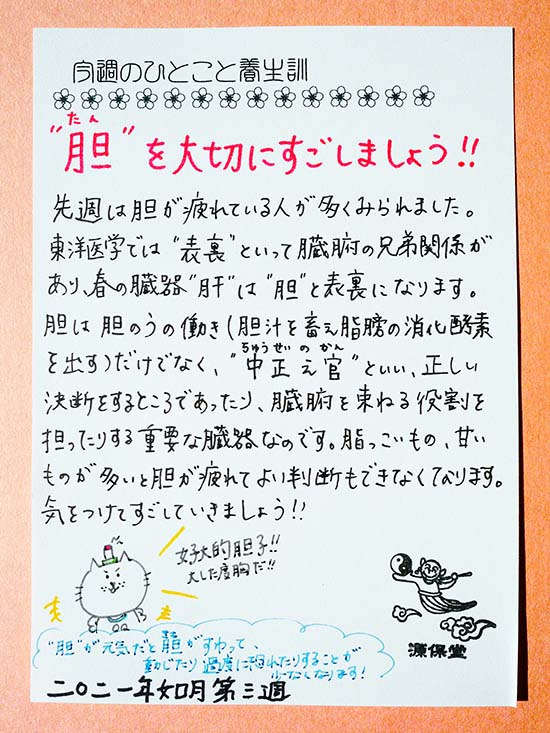 今週のひとこと養生訓
たん
“胆”を大切にすごしましょう!!
先週は胆が疲れている人が多くみられました。
東洋医学では“表裏”といって臓腑の兄弟関係が
あり、春の臓器“肝”は“胆”と表裏になります。
胆は胆のうの働き(胆汁を蓄え脂膀の消化酵素
を出す)だけでなく、“中正之官”といい、正しい
ちゅうせいのかん
決断をするところであったり、臓腑を束ねる役割を
担ったりする重要な臓器なのです。脂っこいもの、甘い
ものが多いと胆が疲れてよい判断もできなくなります。
気をつけてすごしていきましょう!!
好大的胆子!!
大した度胸だ!!
“胆”が元気だと 肝がすわって、
動じたり過度に恐れたりすることが
少なくなります!
源保堂
二〇二一年如月第三週